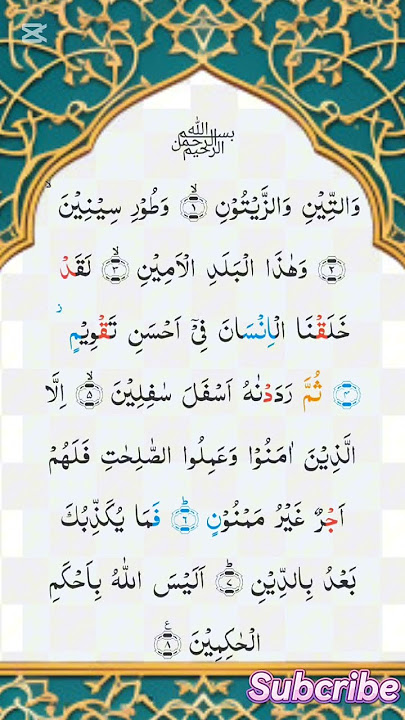 بسم الله الرحمن الرحيم
وَالتِّيْنِ وَالزَّيْتُوْنِ ۙ﴿۱﴾ وَطُوْرِ سِيْنِيْنَ ۙ
﴿۲﴾ وَهٰذَا الْبَلَدِ الْاَمِيْنِ ۙ﴿۳﴾ لَقَدْ
خَلَقْنَا الْاِنْسَانَ فِيْۤ اَحْسَنِ تَقْوِيْمٍ ۫
﴿۴﴾ ثُمَّ رَدَدْنٰهُ اَسْفَلَ سٰفِلِيْنَ ۙ﴿۵﴾ اِلَّا
الَّذِيْنَ اٰمَنُوْا وَعَمِلُوا الصّٰلِحٰتِ فَلَهُمْ
اَجْرٌ غَيْرُ مَمْنُوْنٍ ؕ﴿۶﴾ فَمَا يُكَذِّبُكَ
بَعْدُ بِالدِّيْنِ ؕ﴿۷﴾ اَلَيْسَ اللّٰهُ بِاَحْكَمِ
الْحٰكِمِيْنَ ﴿۸﴾ ع
Subcribe